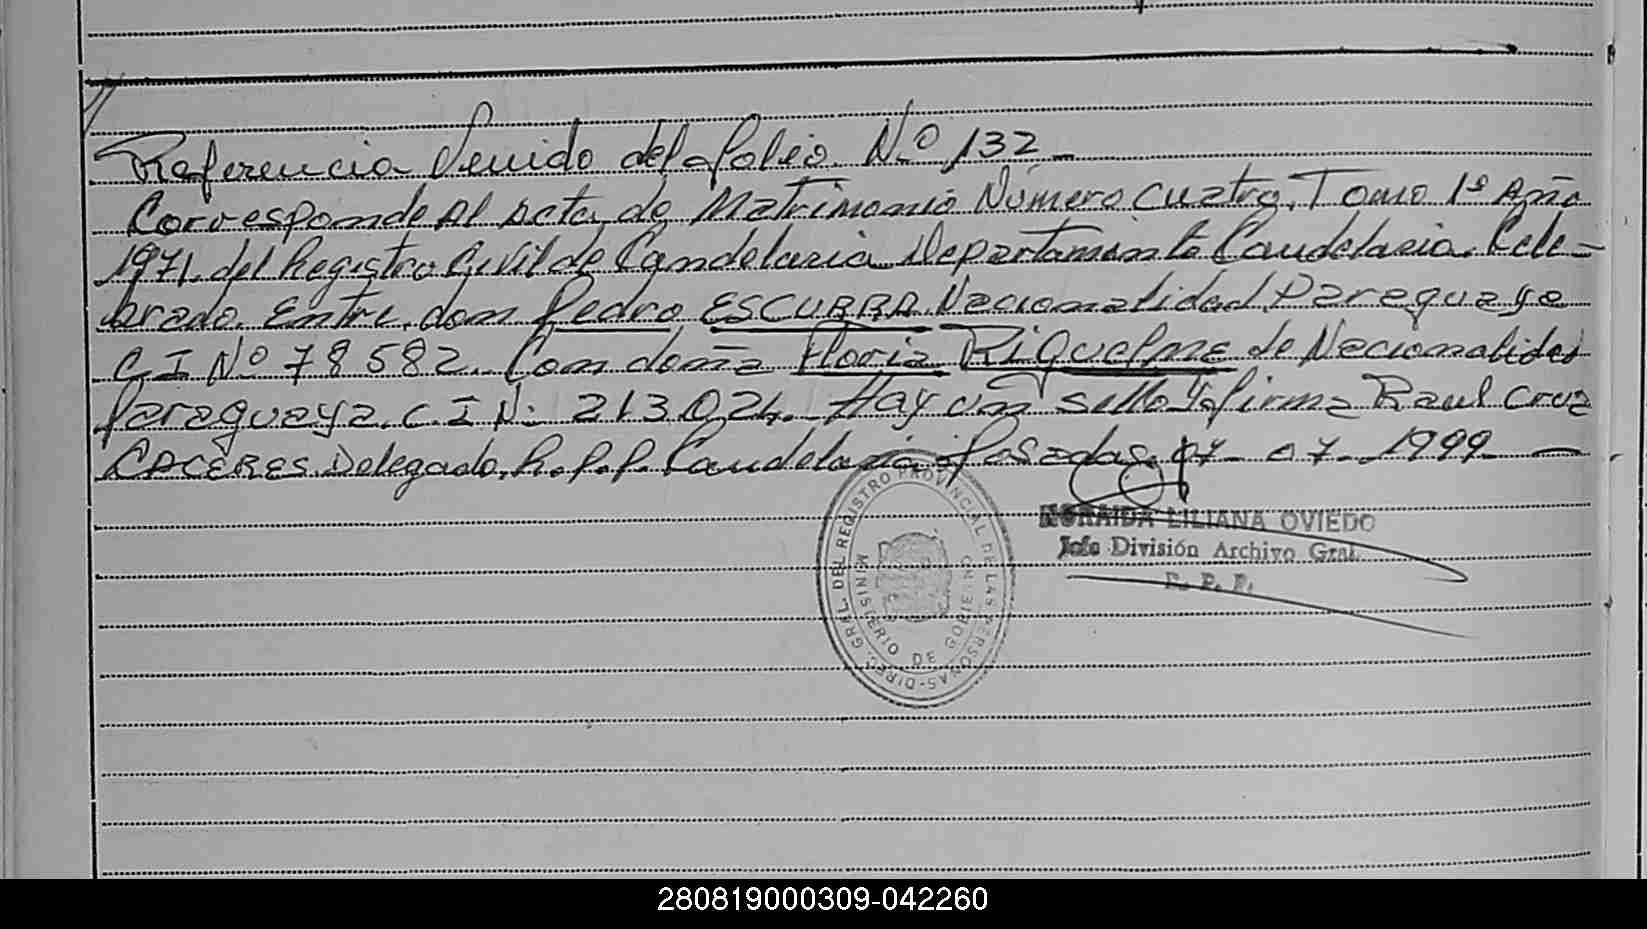 Referencia Venido del folio Nº 132 -
Corresponde Al Acta de Matrimonio Número cuatro, Tomo 1º Año
1971. del Registro Civil de Candelaria Departamento Candelaria. Cele-
brado. Entre don Pedro ESCURRA Nacionalidad Paraguaya
C I Nº 78582. Con doña Floria Riquelme de Nacionalidad
Paraguaya. C I N: 213.024. Hay un sello Y firma Raul Cruz
CACERES Delegado. R.P.P. Candelaria. Posadas, 07-07-1999 -
NORAIDA LILIANA OVIEDO
Jefe División Archivo Gral.
R. P. P.
DIREC. GRAL. DEL REGISTRO PROVINCIAL DE LAS PERSONAS-
MINISTERIO DE GOBIERNO
280819000309-042260